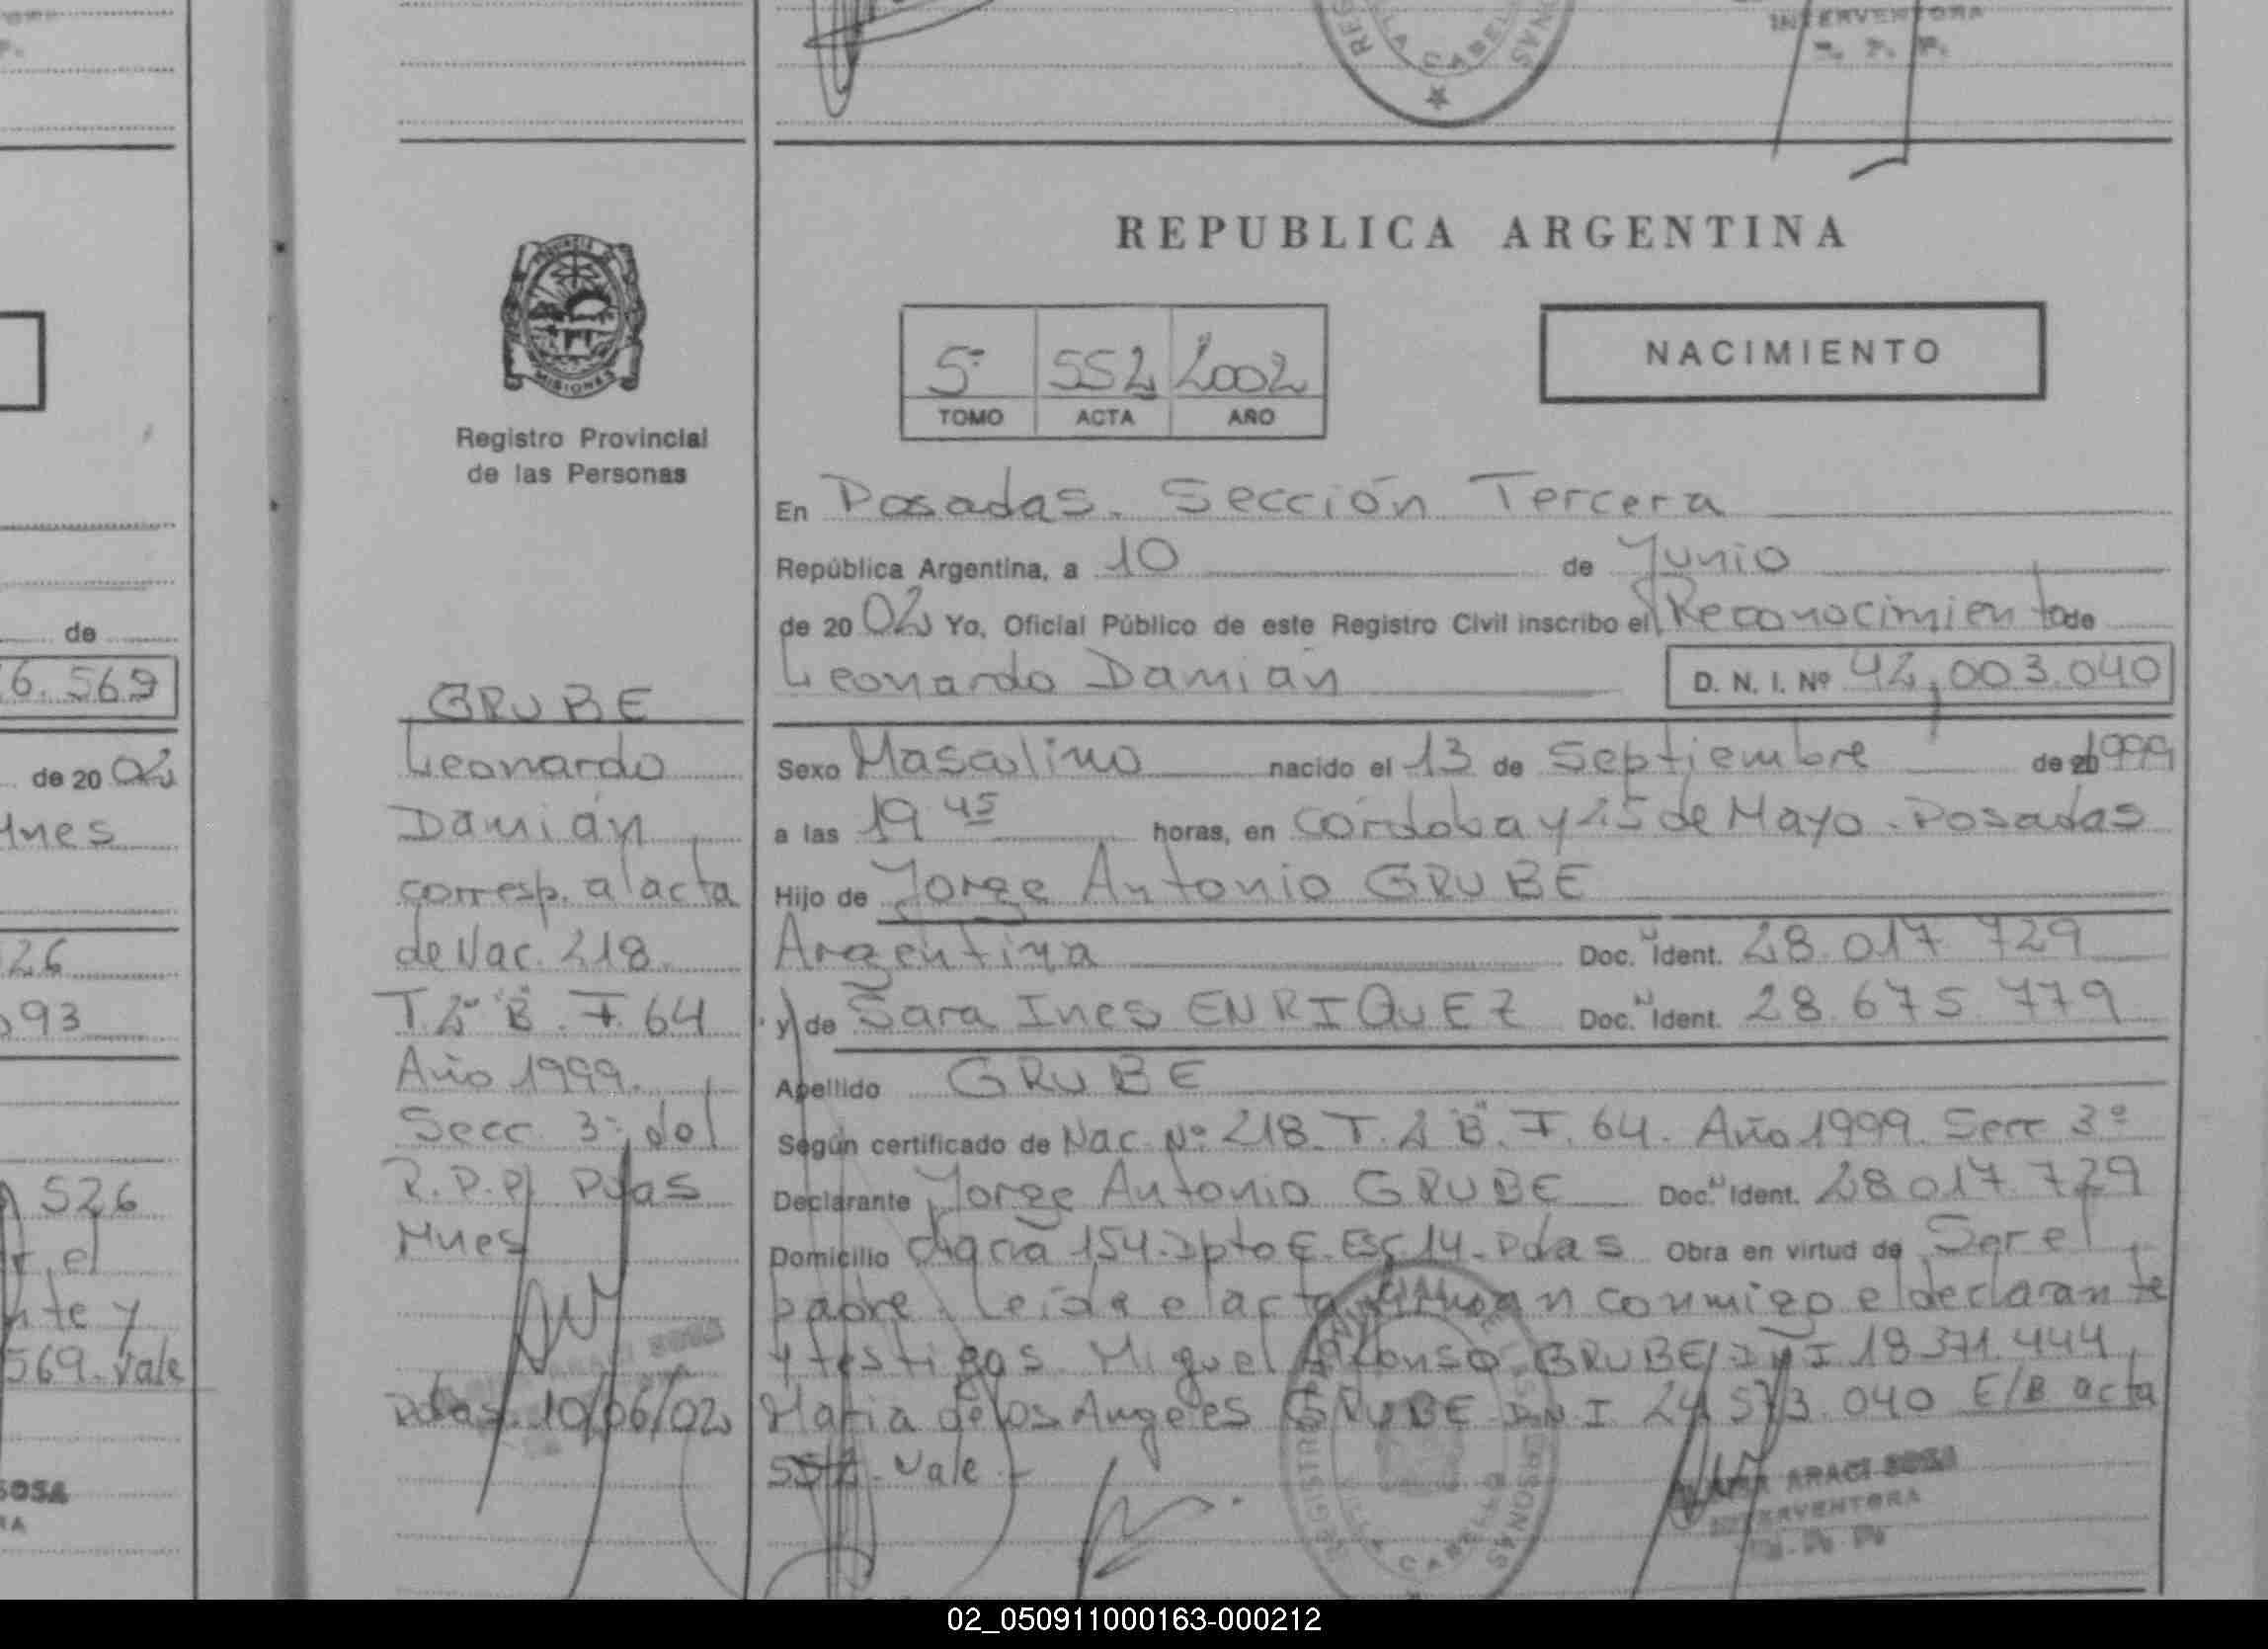 INTERVENTORA
R. P. P.
REPUBLICA ARGENTINA
PROVINCIA DE
MISIONES
Registro Provincial
de las Personas
5º 552 2002
TOMO ACTA AÑO
NACIMIENTO
En Posadas. Sección Tercera
República Argentina, a 10 de Junio
de 2002 Yo, Oficial Público de este Registro Civil inscribo el Reconocimiento de
Leonardo Damián D. N. I. Nº 42.003.040
Sexo Masculino nacido el 13 de Septiembre de 1999
a las 19 45 horas, en Córdoba y 25 de Mayo. Posadas
Hijo de Jorge Antonio GRUBE
Argentina Doc. N Ident. 28.017.729
y de Sara Ines ENRIQUEZ Doc. N Ident. 28.675.779
Apellido GRUBE
Según certificado de Nac. Nº 218. T. 2 "B". F. 64. Año 1999. Secc 3º
Declarante Jorge Antonio GRUBE Doc. N Ident. 28.017.729
Domicilio 154. Dpto E. Esc. 14. Pdas Obra en virtud de Ser el
padre. Leída el acta firman conmigo el declarante
y testigos Miguel Alfonso GRUBE DNI 18.371.444
Maria de los Angeles GRUBE D.N.I 24.573.040 E/B acta
552. Vale.-
ARACI SOSA
INTERVENTORA
GRUBE
Leonardo
Damián
corresp. al acta
de Nac. 218.
T. 2º "B". F. 64
Año 1999.
Secc. 3º, del
R.P.P. Pdas
Mnes
SOSA
Pdas. 10/06/02
de
6.569
de 2002
Ines
26
93
526
el
nte y
569. Vale
SOSA
RA
02_050911000163-000212